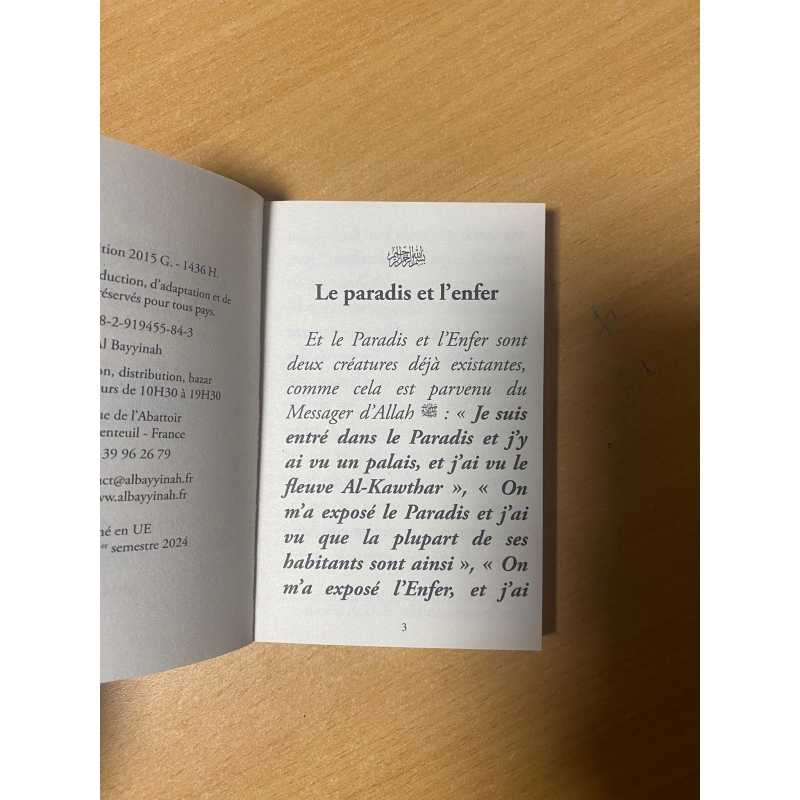 tion 2015 G. - 1436 H.
duction, d'adaptation et de
réservés pour tous pays.
8-2-919455-84-3
Al Bayyinah
on, distribution, bazar
urs de 10H30 à 19H30
ue de l'Abattoir
enteuil - France
39 96 26 79
act@albayyinah.fr
ww.albayyinah.fr
mé en UE
er semestre 2024
بسم الله الرحمن الرحيم
Le paradis et l'enfer
Et le Paradis et l'Enfer sont
deux créatures déjà existantes,
comme cela est parvenu du
Messager d'Allah ﷺ : « Je suis
entré dans le Paradis et j'y
ai vu un palais, et j'ai vu le
fleuve Al-Kawthar », « On
m'a exposé le Paradis et j'ai
vu que la plupart de ses
habitants sont ainsi », « On
m'a exposé l'Enfer, et j'ai
3